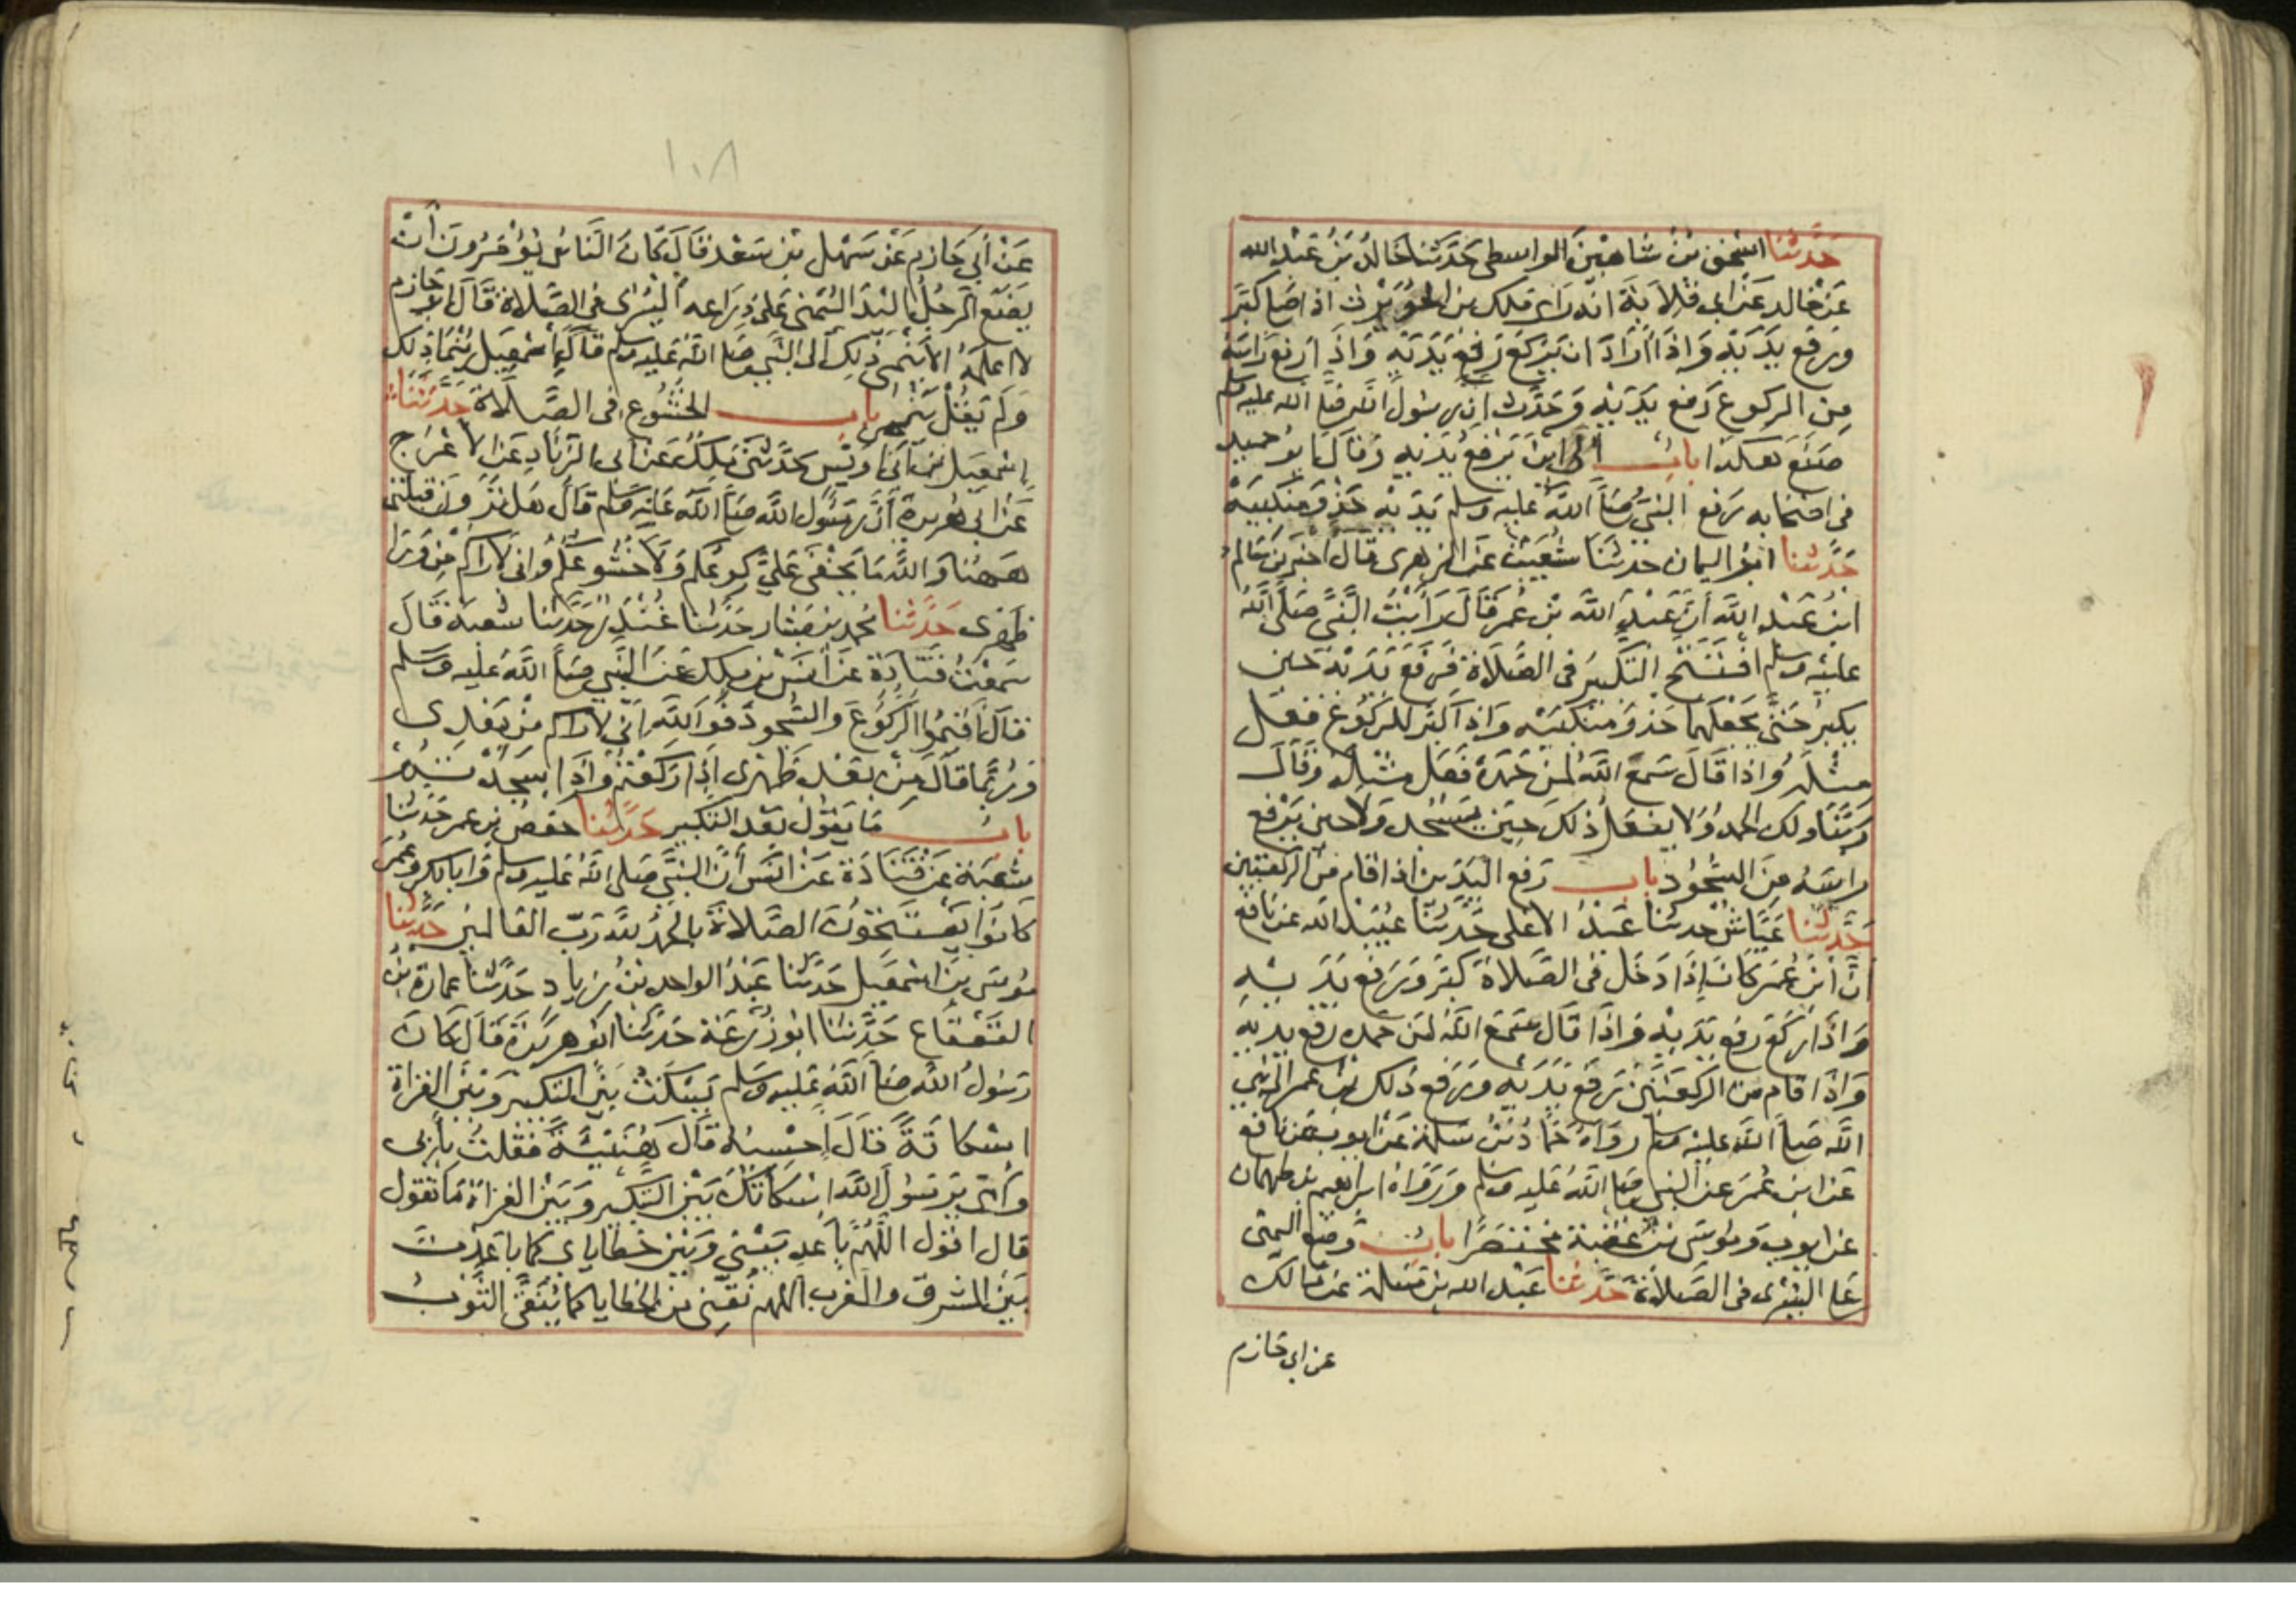 حَدَّثَنَا اسحٰق بنُ شاهين الواسطى حَدَّثنا خَالدُ بنُ عَبْدِ الله
عَن خالد عَن ابى قلابَةَ انه رَاى ملك بن الحُوَيْرث اذا صَلا كَبَّرَ
ورَفع يَدَيْهِ وَاذا ارَادَ ان يَرْكَعَ رَفَعَ يَدَيْهِ وَاذَا رَفع رَاسَهُ
مِنَ الركوع رَفع يَدَيْهِ وَحَدَّث ان رسُولَ الله صَلّى الله عليه وسلم
صَنَعَ هٰكذا بابُ الى اين يَرْفَعُ يَدَيْهِ وَقالَ ابو حميد
فى اصْحَابه رَفع النبيُّ صَلّى الله عليه وسلم يَدَيْه حَذْوَ مَنكِبَيْهِ
حَدَّثنا ابُو اليمان حدثنا شُعَيْبٌ عَن الزهرى قالَ اخبرنى سَالمُ
ابنُ عَبْدِ اللهِ أنّ عَبْدَ اللهِ بْنَ عُمَر قَالَ رَأيْتُ النَّبىَّ صَلَّى اللهُ
عليْهِ وسلم افتَتَحَ التكبيرَ فى الصَّلَاةِ فرَفَعَ يَدَيْهِ حين
يكبرُ حَتّى يَجْعَلَهُما حَذْوَ مَنْكبَيْهِ وَاذا كبّر للركُوع فعَل
مثلَهُ وَاذا قَالَ سَمعَ اللهُ لمَنْ حَمِدَهُ فعَلَ مثلَهُ وَقَالَ
ربَّنَا ولك الحمدُ وَلا يفعَلُ ذلكَ حِينَ يَسْجُدُ وَلاحين يَرْفع
راسَهُ مِنَ السُّجُود بابُ رَفع اليَدَين اذا قام من الركعتين
حَدَّثنا عَيَّاشٌ حدثنا عَبْدُ الاعلى حَدَّثَنا عُبَيْدُ الله عن نافع
انّ ابنَ عُمَر كانَ إذَا دَخَل فى الصَّلاة كبّر وَرَفع يَدَيْهِ
وَاذَا رَكعَ رَفع يَدَيْهِ وَاذَا قالَ سَمعَ اللهُ لمَن حَمده رَفع يديه
وَاذَا قام من الركعَتَيْن رَفَعَ يَدَيْه ورَفع ذلك ابن عمر الى نبى
الله صَلّى الله عليْه وسلم روَاهُ حَمّادُ بْنُ سَلمة عَنْ ايوب عن نافع
عَن ابن عُمَرَ عن النبى صَلّى اللهُ عَليه وسلم وَرَوَاهُ ابراهيم بن طهمان
عن ايوب وَمُوسى بن عقبة مختصَرًا بابُ وَضع اليمنى
عَلى اليسْرى فى الصَّلَاة حَدَّثنا عَبْد الله بن مَسْلمة عن مَالك
عن ابى حَازم
١٠٨
عَنْ أبى حَازمٍ عَنْ سَهْل بْن سَعْد قَالَ كَانَ النَّاسُ يُؤْمَرُونَ أن
يَضَعَ الرجُلُ اليَدَ اليُمْنى عَلى ذِرَاعه اليُسْرى فى الصَّلاة قَالَ ابو حَازم
لا اعلمُهُ الا يَنْمى ذلِك الى النَّبى صَلّى اللهُ عَليه وسلم قَالَ إِسْمعِيل يُنْمَا ذلِك
وَلَم يَقُلْ يَنْمى بابُ الخُشُوع فى الصَّلَاة حَدَّثَنَا
إسْمعِيل بن أبى أوَيْس حَدَّثَنى مٰلكٌ عَن ابى الزنادِ عَن الاعْرَج
عَن ابى هُريرةَ أنَّ رسُولَ الله صَلّى اللهُ عَلَيْه وَسلم قَالَ هَل تَرَوْنَ قبلتى
هٰهُنا وَالله مَا يَخْفَى عَلىَّ ركوعُكم وَلَا خُشُوعُكم وَانى لَارَاكم مِن وَرَا
ظهرى حَدَّثنا محمد بن بَشار حَدَّثنا غُنْدَرٌ حَدَّثنا شعبة قَالَ
سَمعْتُ قتَادَةَ عَن أنَسْ بن مٰلك عَن النَّبى صَلّى اللهُ عَليه وَسَلم
قالَ أقيمُوا الركُوعَ والسُّجود فَوَ اللهِ انّى لاراكم مِنْ بَعْدى
وَرُبَّما قالَ مِنْ بَعْد ظهْرى اذا رَكَعْتمْ وَاذا سَجَدْتُمْ
بابُ مَا يَقول بَعْد التكبير حَدَّثنا حفصُ بن عمر حَدثنا
شعْبَة عَن قَتَادَة عَن انَس أنّ النبىَّ صَلى اللهُ عَليه وسلم وَابا بكر وَعُمَرَ
كانُوا يَفْتَتِحُونَ الصَّلاةَ بالحَمْدُ للهِ رَبّ العَالمينَ حَدَّثَنا
مُوسَى بن إسْمعِيل حَدَّثَنا عَبْدُ الواحد بنُ زيادٍ حَدَّثَنا عمارةُ بن
القَعْقَاع حَدَّثَنا ابُو زُرْعَةَ حَدَّثَنا ابُو هرَيْرَةَ قَالَ كَانَ
رَسُولُ اللهِ صَلّى اللهُ عَليه وَسَلم يَسْكتُ بَيْنَ التكبير وَبَيْنَ القراة
اسْكاتَةً قَالَ احْسبُهُ قالَ هُنَيَّةً فقلتُ بأبى
وَأمّى يا رَسُولَ الله اسْكَاتُكَ بَيْنَ التكبير وَبَيْنَ القراة مَا تقول
قال اقول اللّهُمَّ بَاعد بَيْنى وَبَيْنَ خَطاياى كما باعَدت
بَيْنَ المشرق والمغرب اللهم نَقّنى من الخطايا كما يُنَقَّى الثَّوبُ